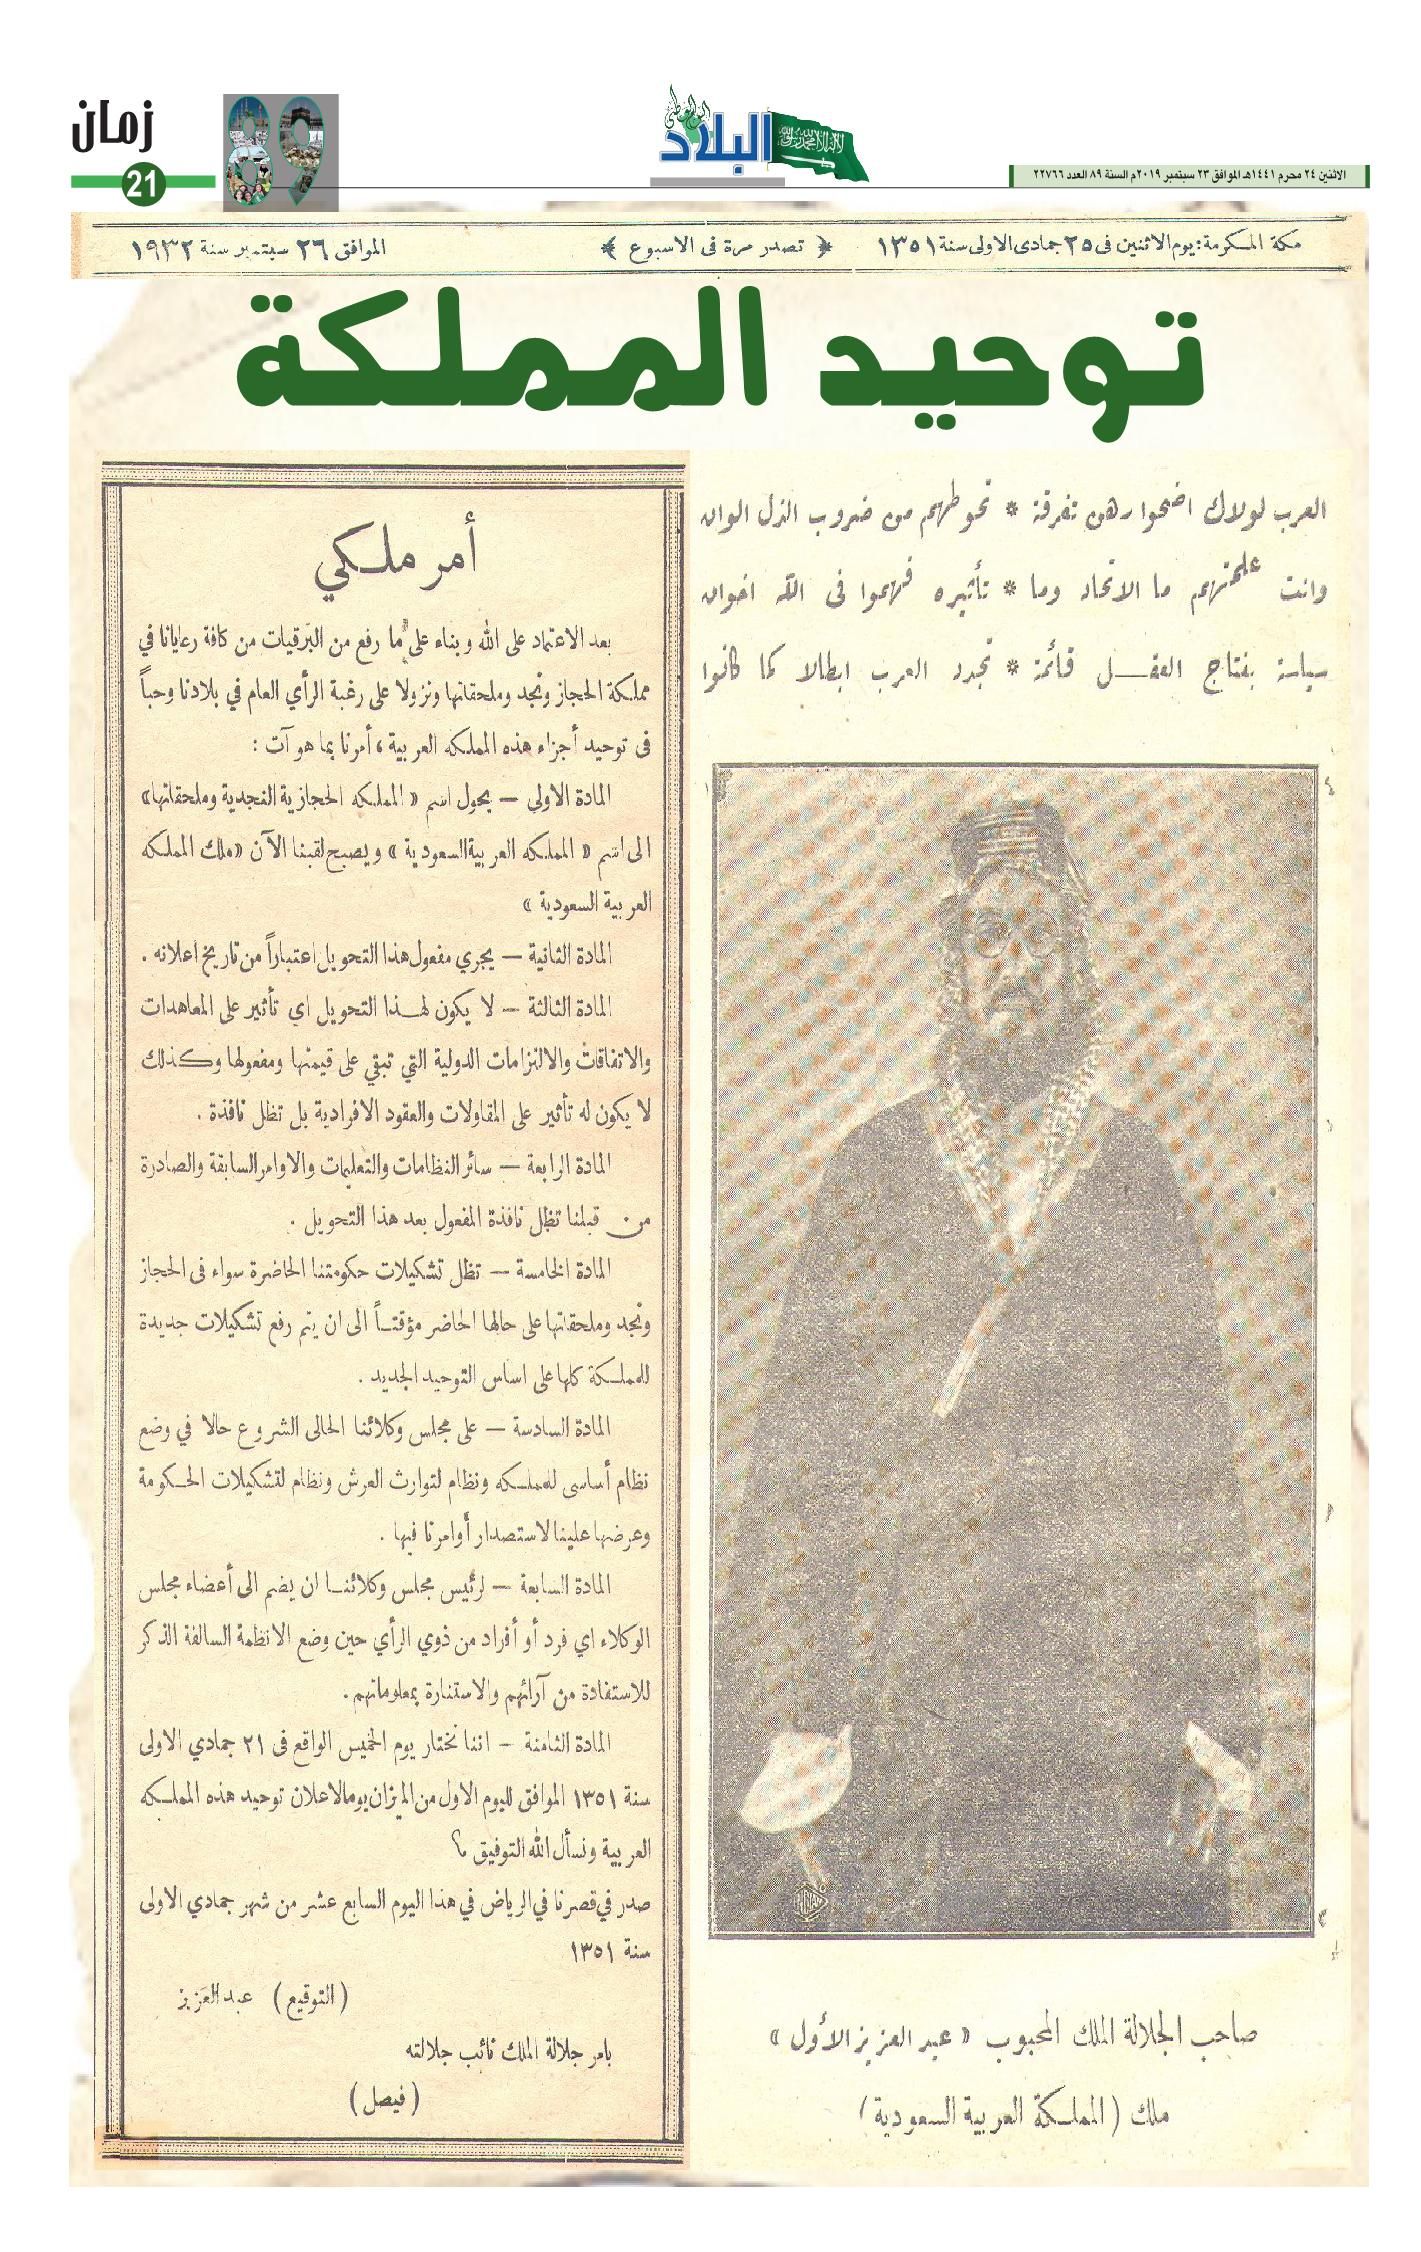 الاثنين ٢٤ محرم ١٤٤١هـ الموافق ٢٣ سبتمبر ٢٠١٩م السنة ٨٩ العدد ٢٢٧٦٦
البلاد
89
زمان
21
مكة المكرمة: يوم الاثنين فى ٢٥ جمادى الاولى سنة ١٣٥١
﴿ تصدر مرة فى الاسبوع ﴾
الموافق ٢٦ سبتمبر سنة ١٩٣٢
توحيد المملكة
العرب لولاك اضحوا رهن تفرقة * تحوطهم من ضروب الذل الوان
وانت علمتهم ما الاتحاد وما * تأثيره فهموا فى الله اخوان
سياسة بفتاج العقل قائمة * تجدد العرب ابطالا كما كانوا
صاحب الجلالة الملك المحبوب « عبد العزيز الأول »
ملك ( المملكة العربية السعودية )
أمر ملكي
بعد الاعتماد على الله وبناء على ما رفع من البرقيات من كافة رعايانا في
مملكة الحجاز ونجد وملحقاتها ونزولا على رغبة الرأي العام في بلادنا وحباً
فى توحيد أجزاء هذه المملكه العربية، أمرنا بما هو آت :
المادة الاولى — يحول اسم « المملكه الحجازية النجدية وملحقاتها »
الى اسم « المملكه العربية السعودية » ويصبح لقبنا الآن « ملك المملكه
العربية السعودية »
المادة الثانية — يجري مفعول هذا التحويل اعتباراً من تاريخ اعلانه .
المادة الثالثة — لا يكون لهذا التحويل اي تأثير على المعاهدات
والاتفاقات والالتزامات الدولية التي تبقي على قيمتها ومفعولها وكذلك
لا يكون له تأثير على المقاولات والعقود الافرادية بل تظل نافذة .
المادة الرابعة — سائر النظامات والتعليمات والاوامر السابقة والصادرة
من قبلنا تظل نافذة المفعول بعد هذا التحويل .
المادة الخامسة — تظل تشكيلات حكومتنا الحاضرة سواء فى الحجاز
ونجد وملحقاتها على حالها الحاضر مؤقتاً الى ان يتم رفع تشكيلات جديدة
للمملكة كلها على اساس التوحيد الجديد .
المادة السادسة — على مجلس وكلائنا الحالى الشروع حالا في وضع
نظام أساسى للمملكه ونظام لتوارث العرش ونظام لتشكيلات الحكومة
وعرضها علينا لاستصدار أوامرنا فيها .
المادة السابعة — لرئيس مجلس وكلائنا ان يضم الى أعضاء مجلس
الوكلاء اي فرد أو أفراد من ذوي الرأي حين وضع الانظمة السالفة الذكر
للاستفادة من آرائهم والاستنارة بمعلوماتهم .
المادة الثامنة — اننا نختار يوم الخميس الواقع فى ٢١ جمادي الاولى
سنة ١٣٥١ الموافق لليوم الاول من الميزان يوما لاعلان توحيد هذه المملكه
العربية ونسأل الله التوفيق ؟
صدر في قصرنا في الرياض في هذا اليوم السابع عشر من شهر جمادي الاولى
سنة ١٣٥١
( التوقيع ) عبد العزيز
بامر جلالة الملك نائب جلالته
( فيصل )